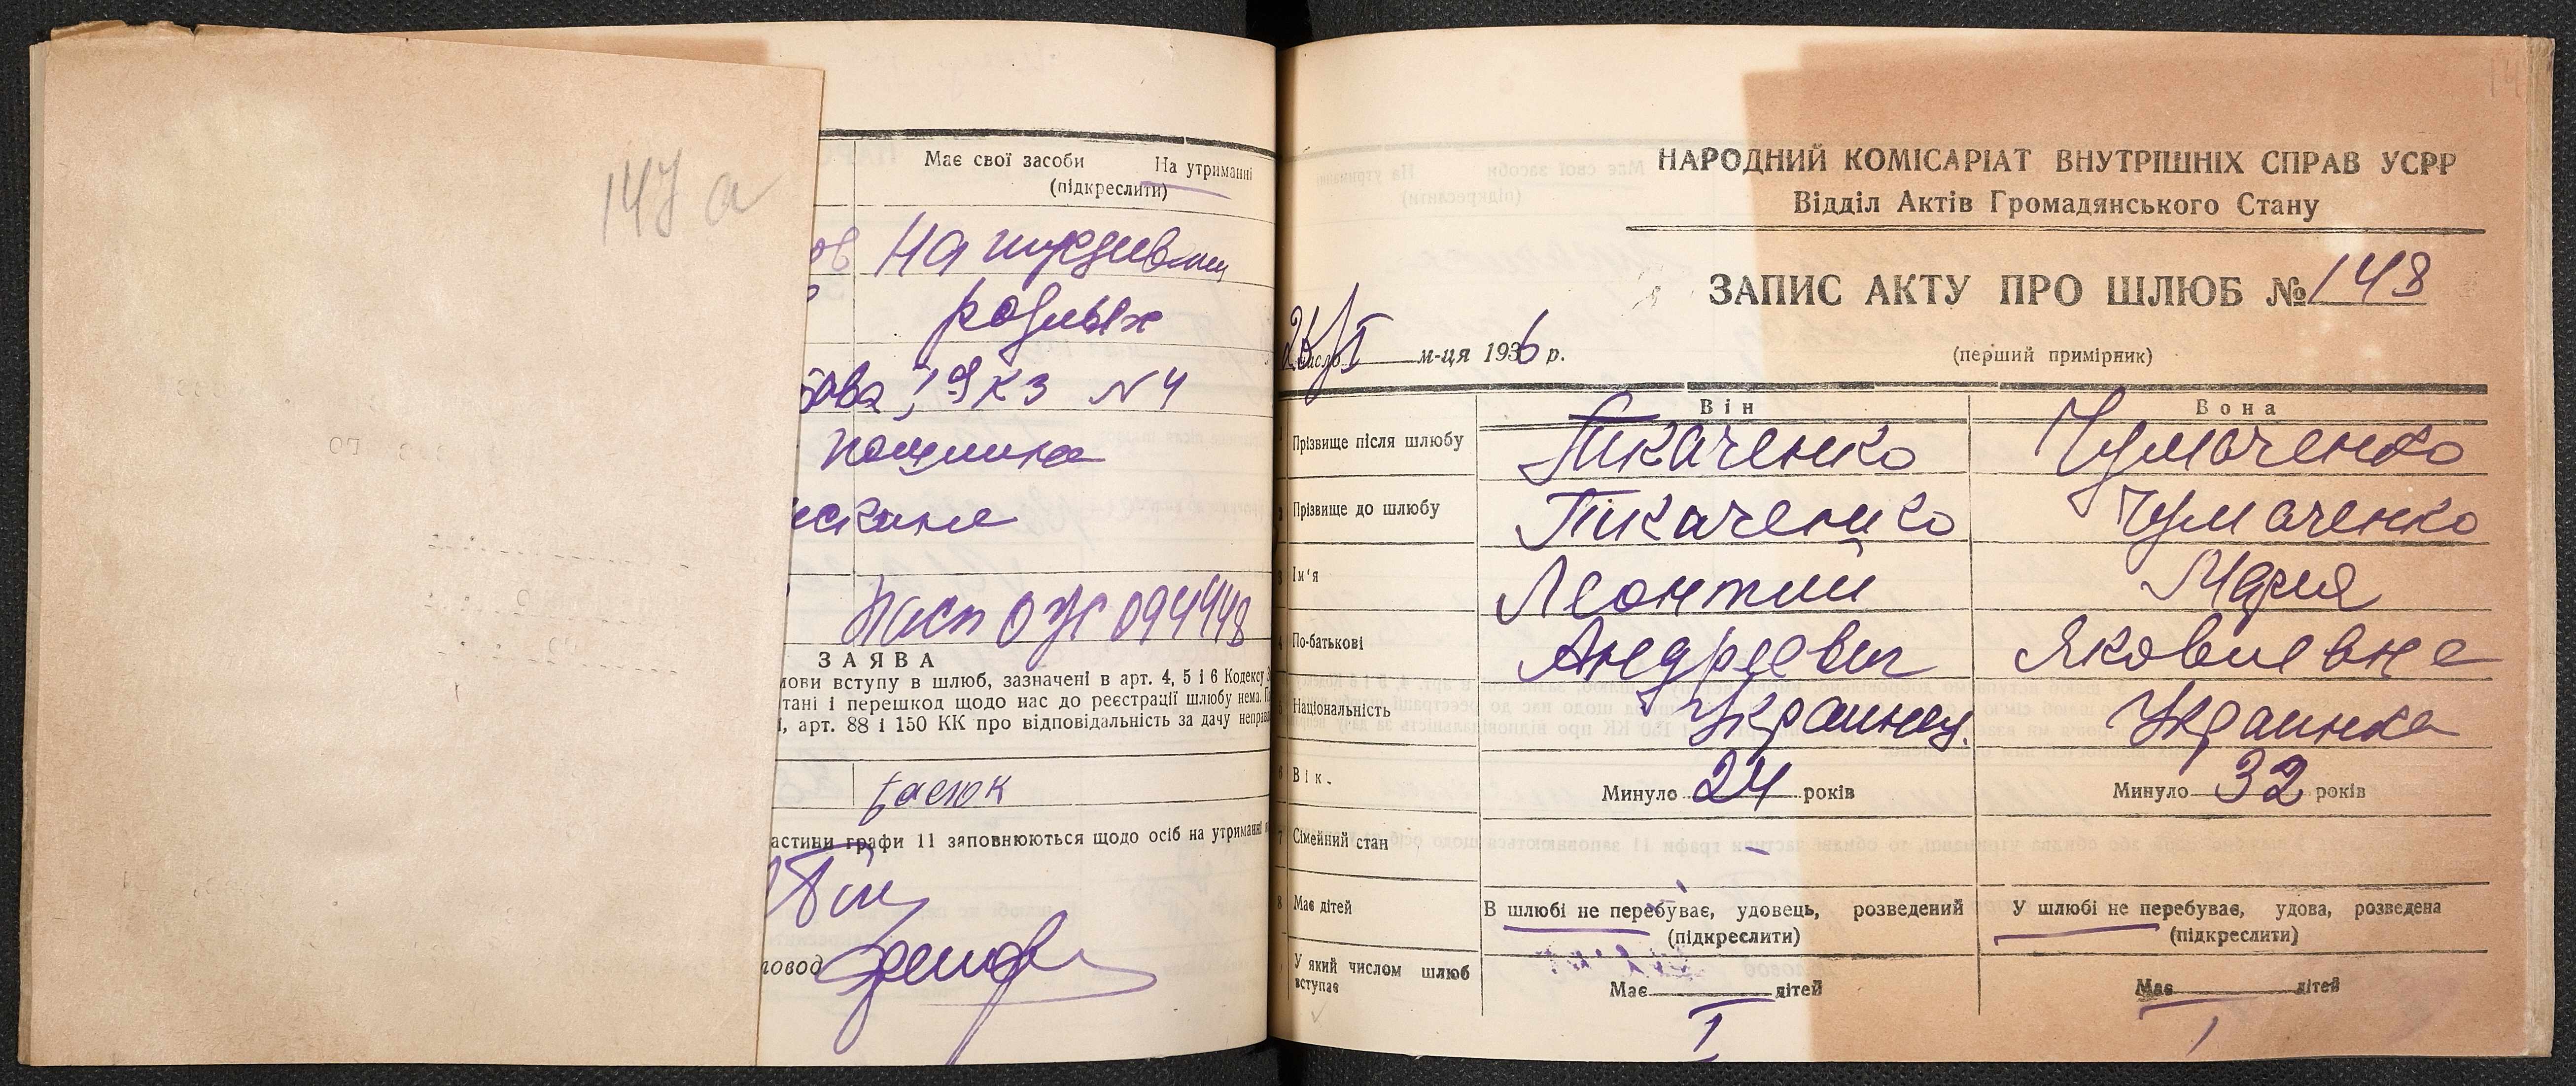 147 а
Має свої засоби На утриманні
(підкреслити)
На
родных
N 4
Пасп 094448
ЗАЯВА
мови вступу в шлюб, зазначені в арт. 4, 5 і 6 Кодексу З
тані і перешкод щодо нас до реєстрації шлюбу нема. П
і, арт. 88 і 150 КК про відповідальність за дачу неправ
астини графи 11 заповнюються щодо осіб на утриманні
ловод
НАРОДНИЙ КОМІСАРІАТ ВНУТРІШНІХ СПРАВ УСРР
Відділ Актів Громадянського Стану
ЗАПИС АКТУ ПРО ШЛЮБ № 148
число м-ця 1936 р.
(перший примірник)
Він Вона
1 Прізвище після шлюбу Ткаченко Чумаченко
2 Прізвище до шлюбу Ткаченко Чумаченко
3 Ім'я Леонтий Мария
4 По-батькові Андреевич Яковлевна
5 Національність Украинец. Украинка
6 Вік. Минуло 24 років Минуло 32 років
7 Сімейний стан –
8 Має дітей В шлюбі не перебуває, удовець, розведений У шлюбі не перебуває, удова, розведена
(підкреслити) (підкреслити)
У який числом шлюб вступає Має дітей Має дітей
I I